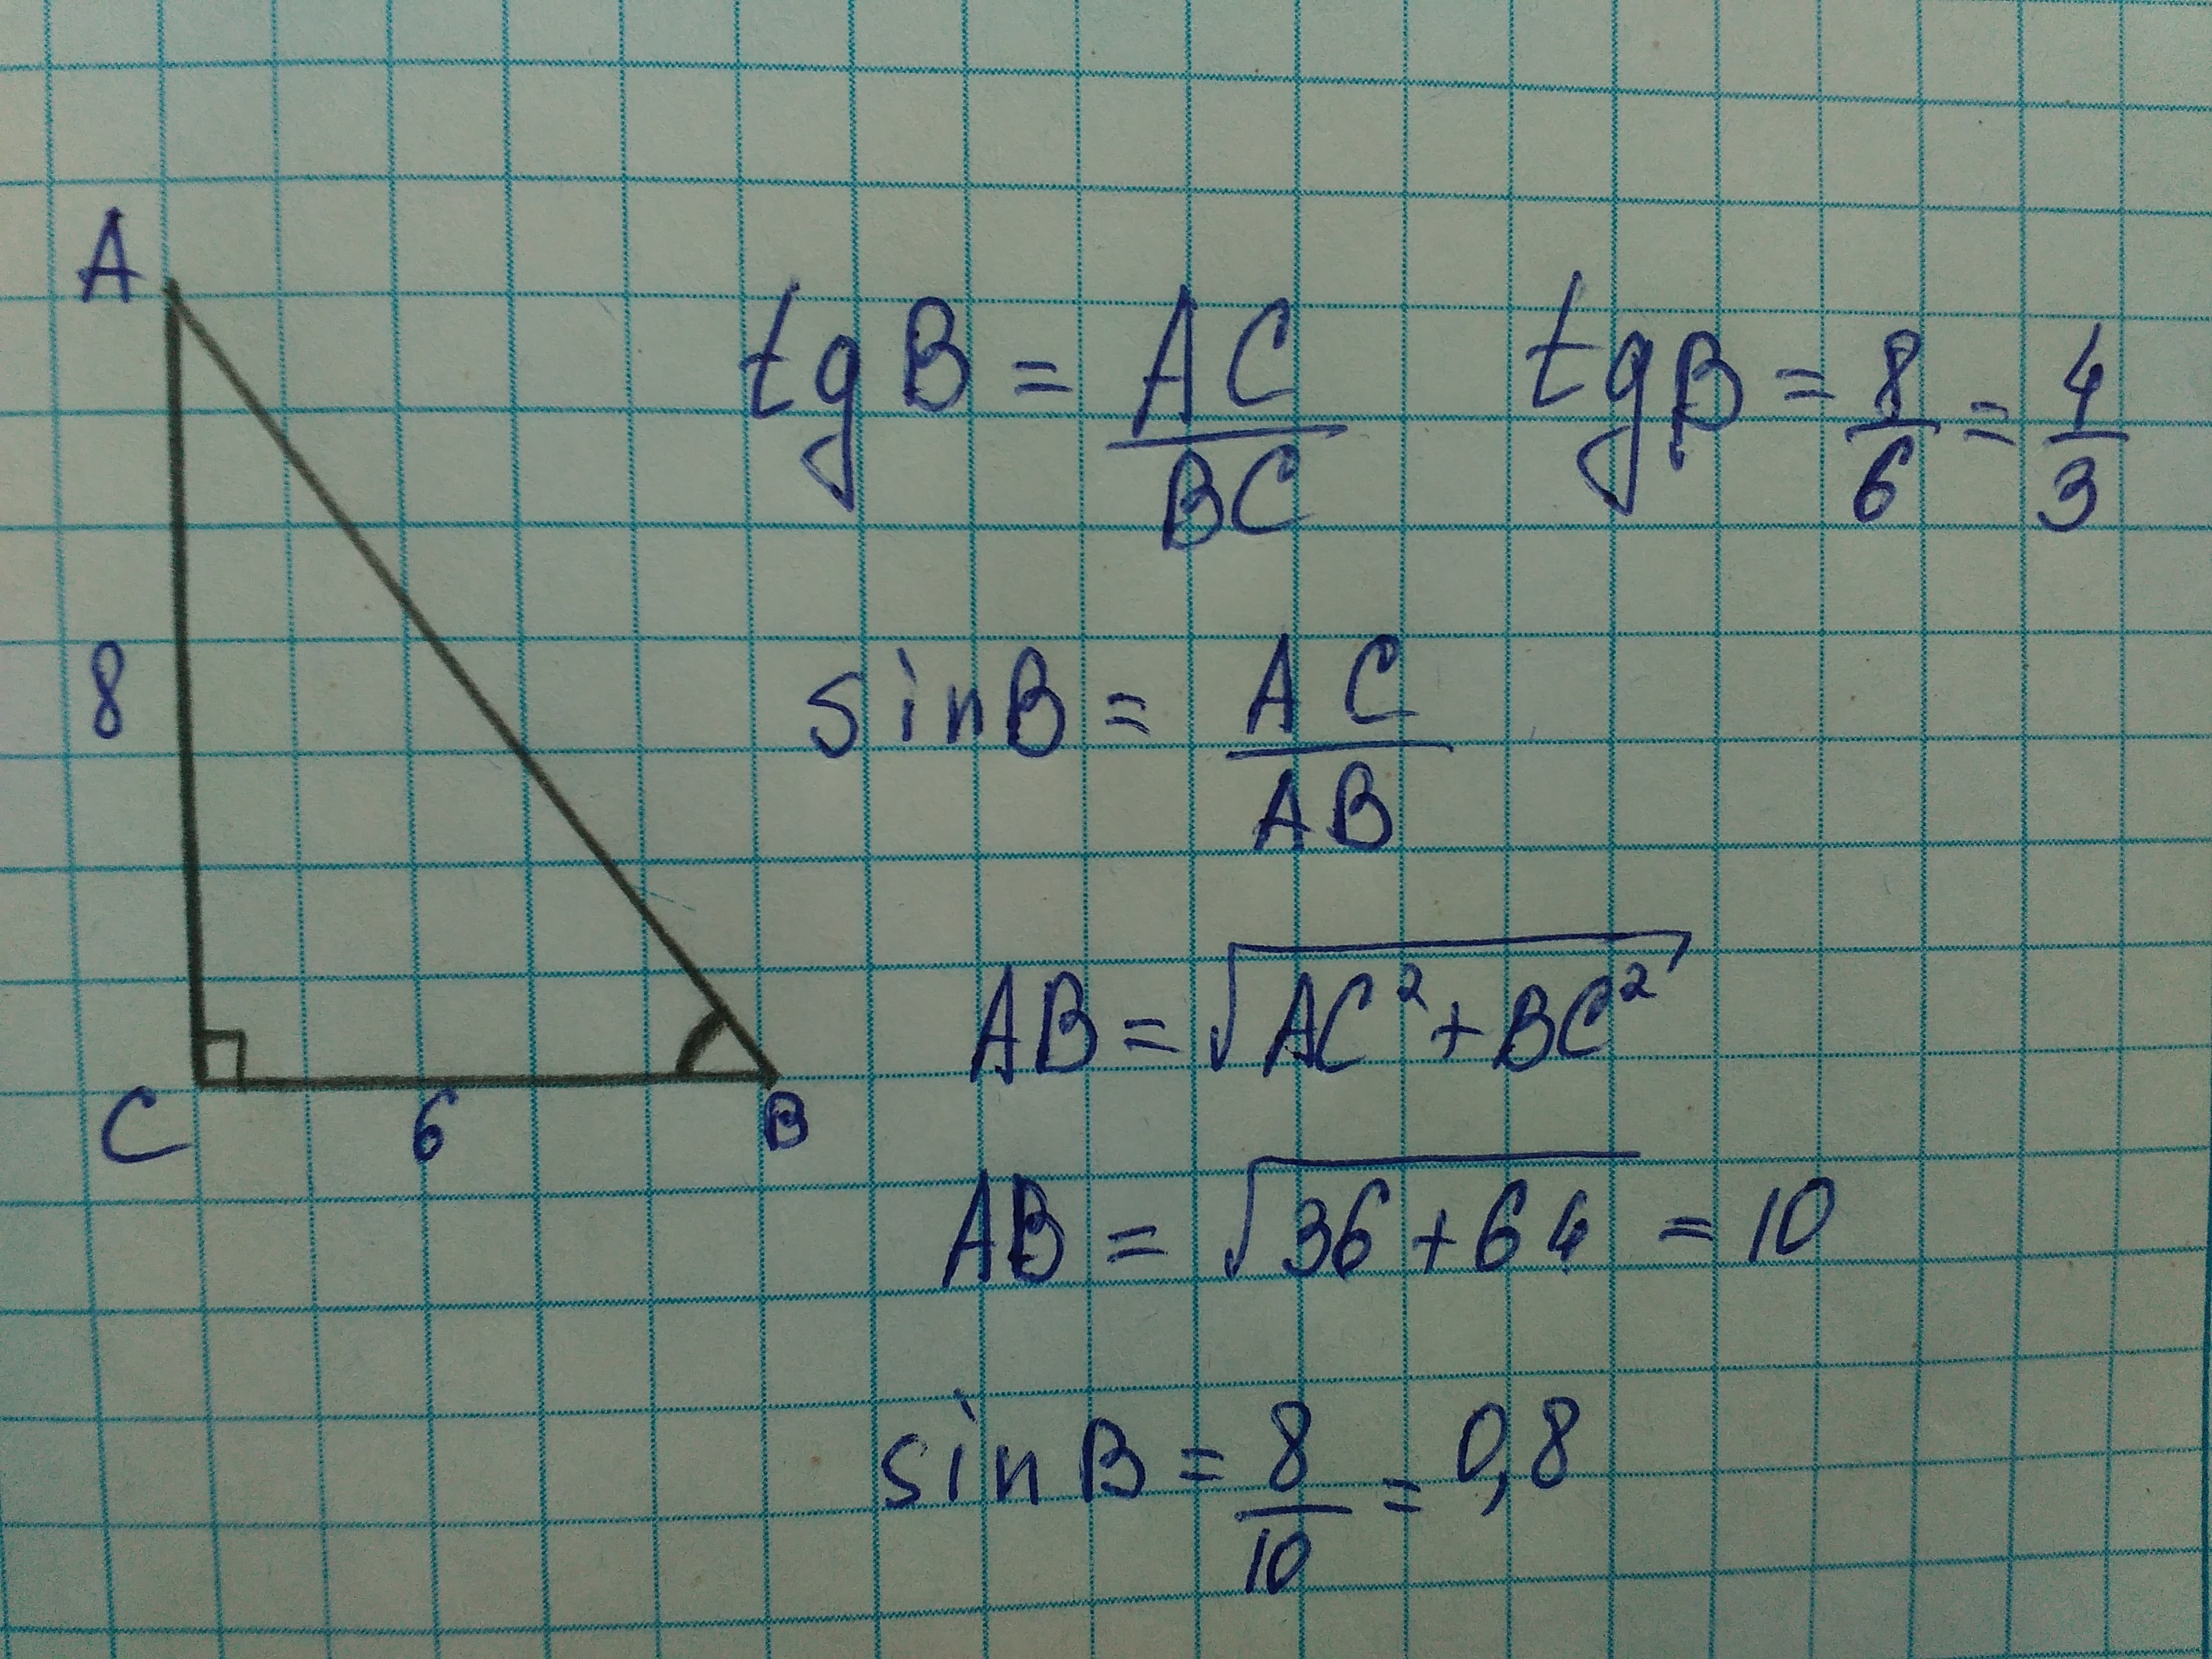 A
8
C
6
B
tg B = AC/BC
tg B = 8/6 = 4/3
sin B = AC/AB
AB = √AC² + BC²
AB = √36 + 64 = 10
sin B = 8/10 = 0,8